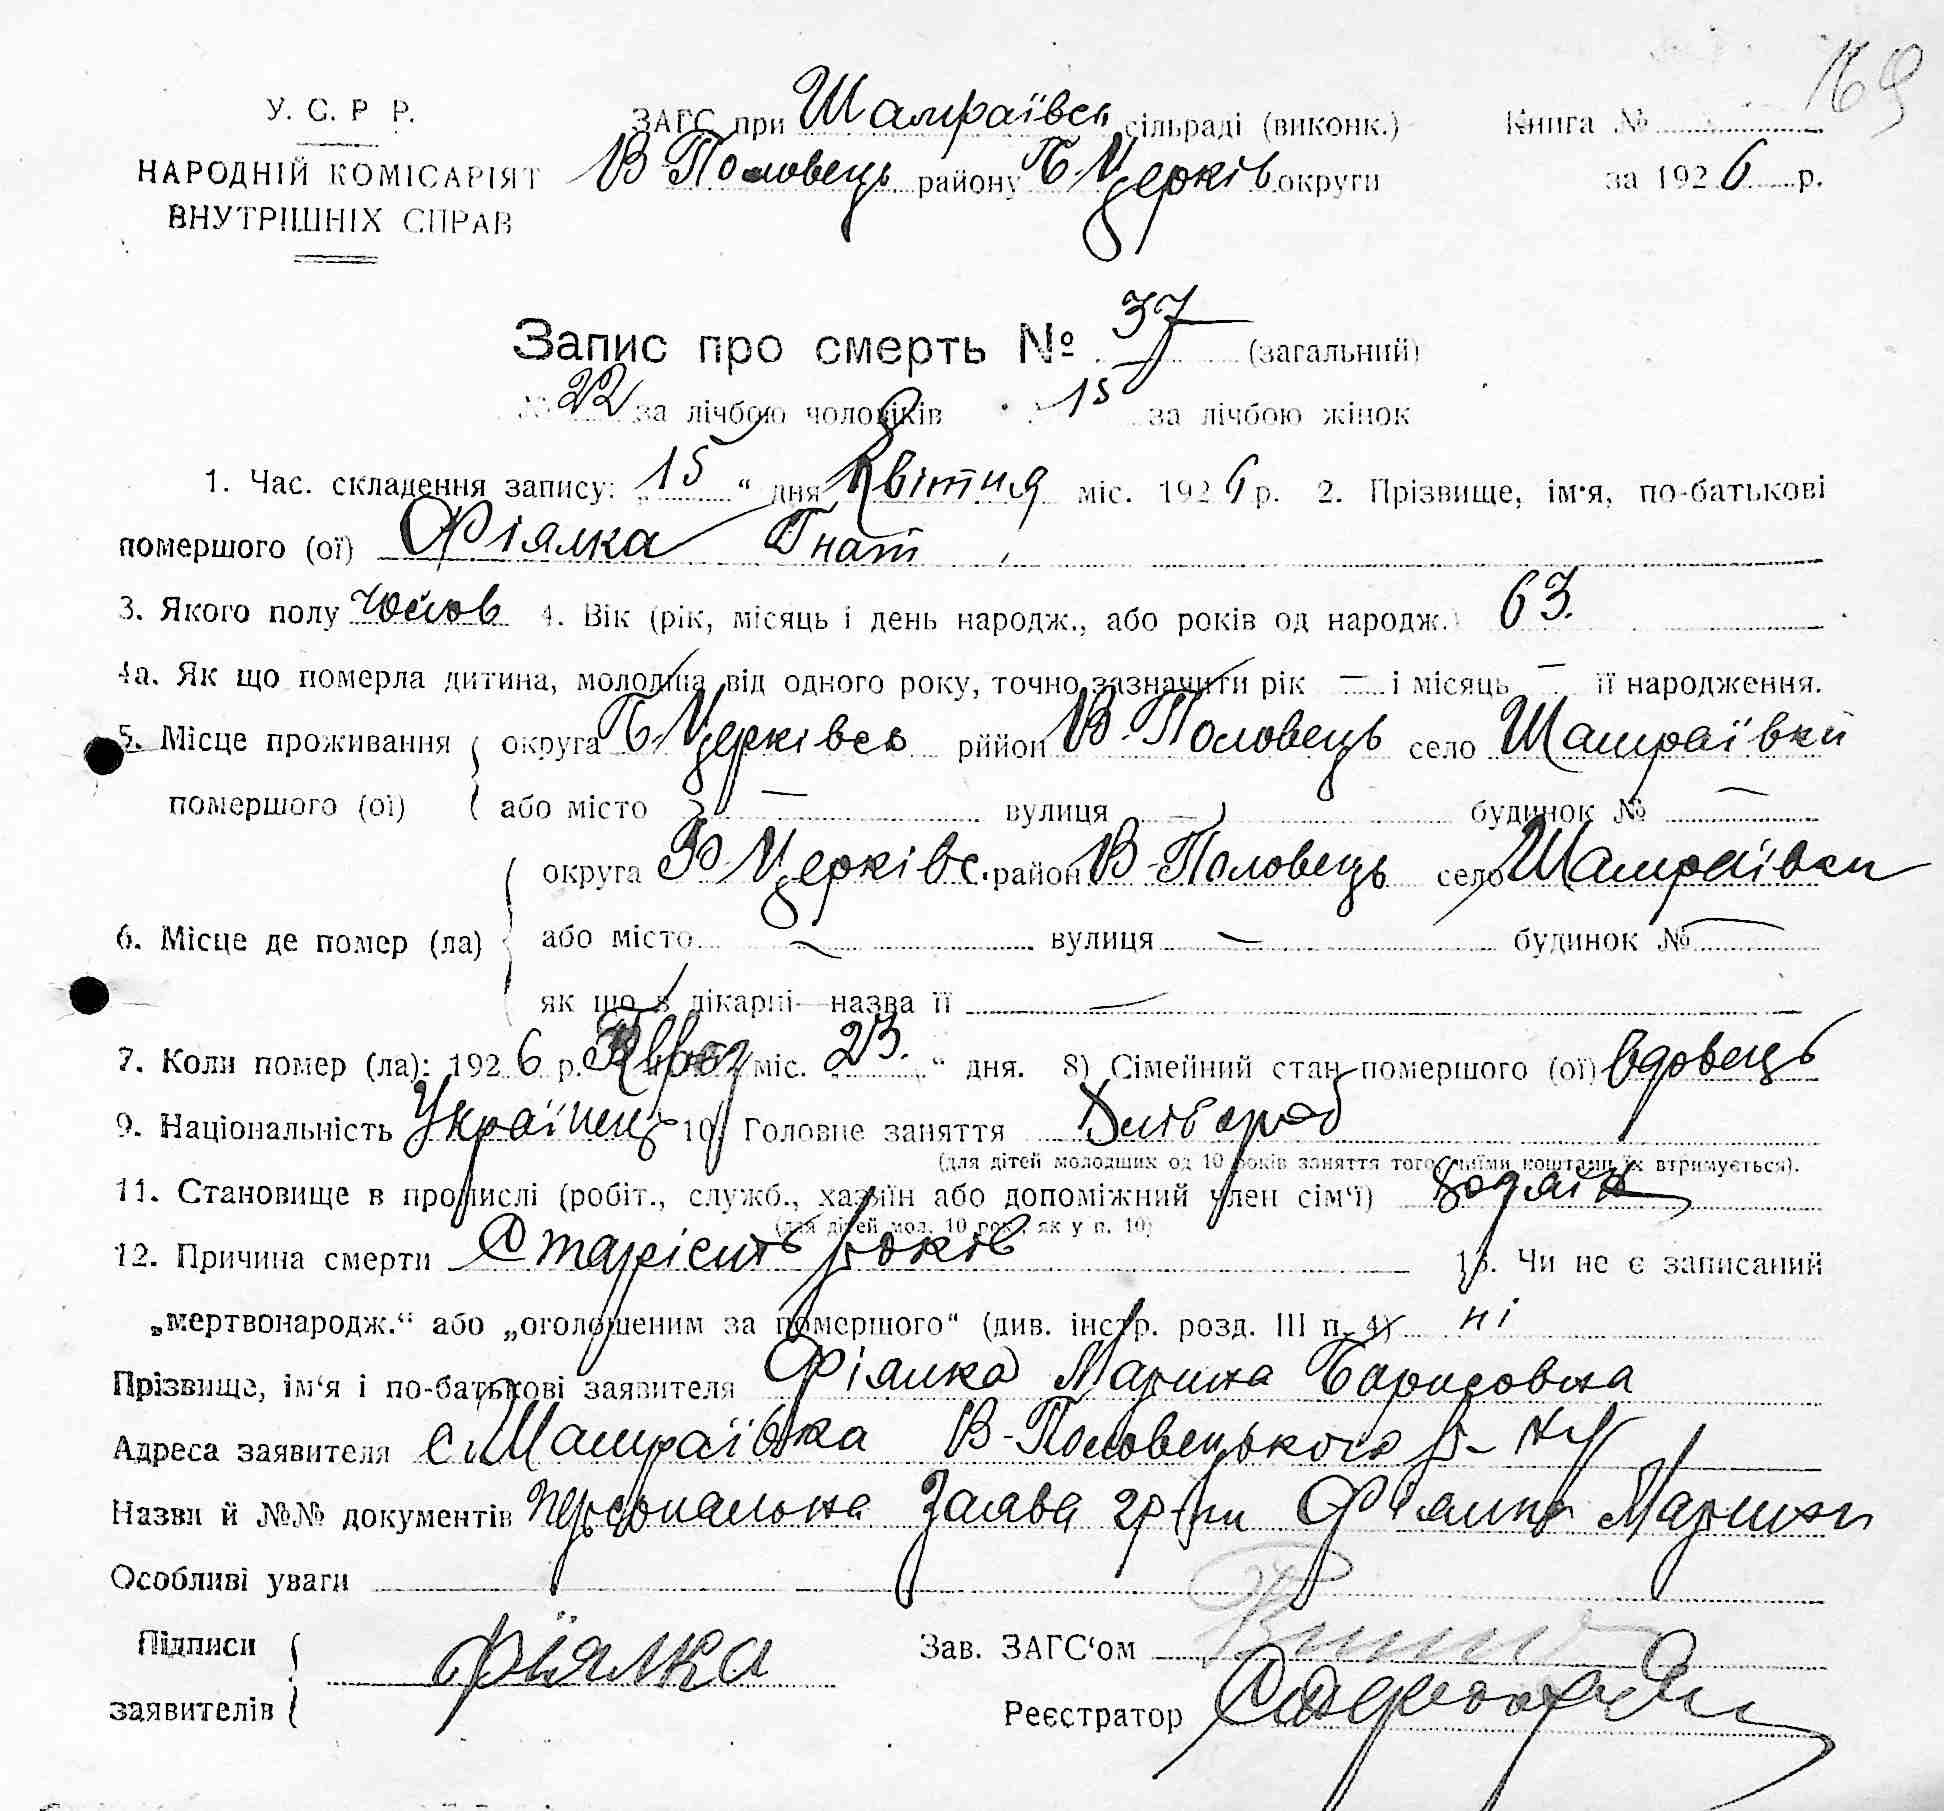 169
У. С. Р Р.
ЗАГС при Шамраївсь сільраді (виконк.)
Книга №
НАРОДНІЙ КОМІСАРІЯТ
В Половець району Б-Церків округи
за 1926 р.
ВНУТРІШНІХ СПРАВ
Запис про смерть № 37 (загальний)
22 за лічбою чоловіків 15 за лічбою жінок
1. Час. складення запису: „15“ дня Квітня міс. 1926 р. 2. Прізвище, ім'я, по-батькові
помершого (ої) Фіялка Гнат
3. Якого полу чолов 4. Вік (рік, місяць і день народж., або років од народж.) 63.
4а. Як що померла дитина, молодша від одного року, точно зазначити рік — і місяць — її народження.
5. Місце проживання округа Б. Церківсь рййон В-Половець село Шамраївки
помершого (ої) або місто — вулиця — будинок № —
округа Б-Церківс. район В-Половець село Шамраївки
6. Місце де помер (ла) або місто — вулиця — будинок № —
як що в лікарні—назва її —
7. Коли помер (ла): 1926 р. міс. „23.“ дня. 8) Сімейний стан помершого (ої) вдовець
9. Національність Українець 10. Головне заняття Хлібороб
(для дітей молодших од 10 років заняття того, чиїми коштами їх втримується).
11. Становище в промислі (робіт., служб., хазяїн або допоміжний член сім'ї)
(для дітей мол. 10 рок., як у п. 10)
12. Причина смерти Старість років 13. Чи не є записаний
„мертвонародж.“ або „оголошеним за помершого“ (див. інстр. розд. III п. 4) ні
Прізвище, ім'я і по-батькові заявителя Фіялка Марина Борисовна
Адреса заявителя с. Шамраївка В-Половецького р-ну
Назви й №№ документів персональна Заява гр-ки Фіялки Марини
Особливі уваги
Підписи
заявителів
Фіялка
Зав. ЗАГС'ом
Реєстратор